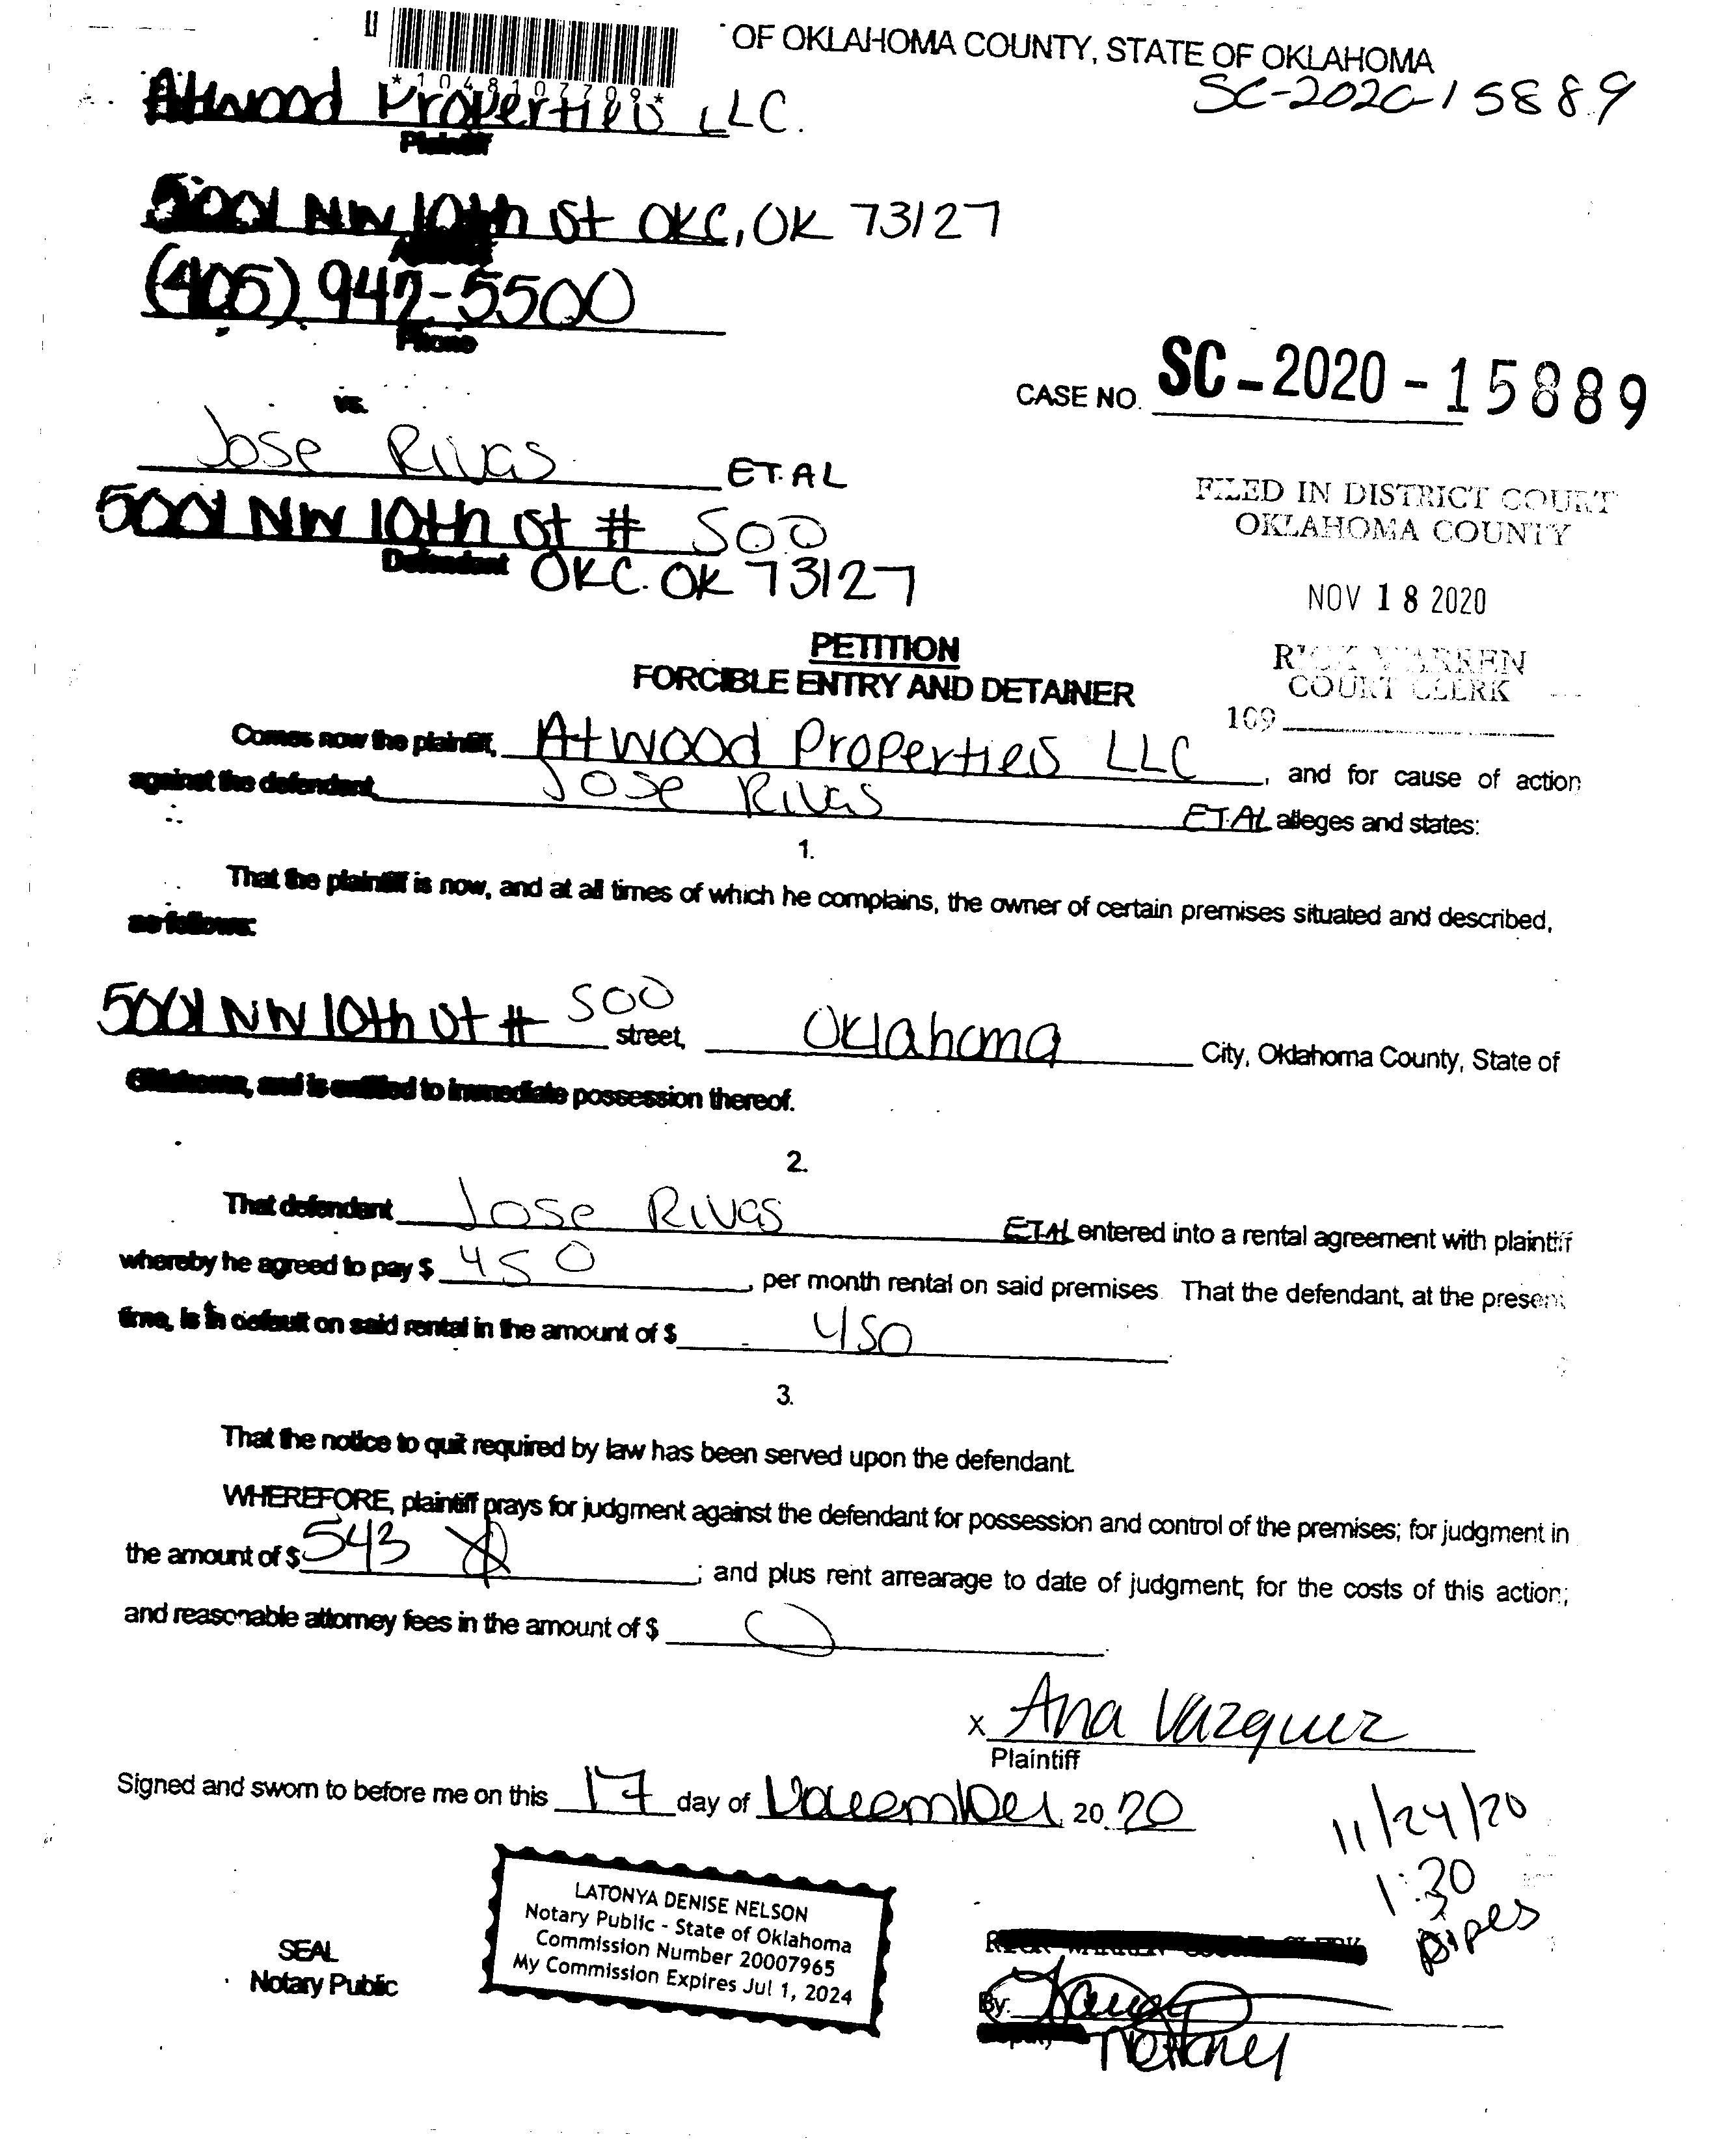 OF OKLAHOMA COUNTY, STATE OF OKLAHOMA
*1048107709*
SC-2020-15889
Atwood Properties LLC.
Plaintiff
5001 NW 10th St OKC, OK 73127
(405) 942-5500
Phone
CASE NO. SC-2020-15889
vs.
Jose Rivas ET.AL
5001 NW 10th St # 500
Defendant OKC. OK 73127
FILED IN DISTRICT COURT
OKLAHOMA COUNTY
NOV 18 2020
RICK WARREN
COURT CLERK
109
PETITION
FORCIBLE ENTRY AND DETAINER
Comes now the plaintiff, Atwood Properties LLC, and for cause of action
against the defendant, Jose Rivas ET.AL alleges and states:
1.
That the plaintiff is now, and at all times of which he complains, the owner of certain premises situated and described,
as follows:
5001 NW 10th St # 500 street, Oklahoma City, Oklahoma County, State of
Oklahoma, and is entitled to immediate possession thereof.
2.
That defendant Jose Rivas ET.AL entered into a rental agreement with plaintiff
whereby he agreed to pay $ 450, per month rental on said premises. That the defendant, at the present
time, is in default on said rental in the amount of $ 450
3.
That the notice to quit required by law has been served upon the defendant.
WHEREFORE, plaintiff prays for judgment against the defendant for possession and control of the premises; for judgment in
the amount of $ 543; and plus rent arrearage to date of judgment; for the costs of this action;
and reasonable attorney fees in the amount of $ 0.
x Ana Vazquez
Plaintiff
Signed and sworn to before me on this 17 day of November, 2020
11/24/20
1:30
LATONYA DENISE NELSON
Notary Public - State of Oklahoma
Commission Number 20007965
My Commission Expires Jul 1, 2024
SEAL
Notary Public
RICK WARREN COURT CLERK
By:
Deputy